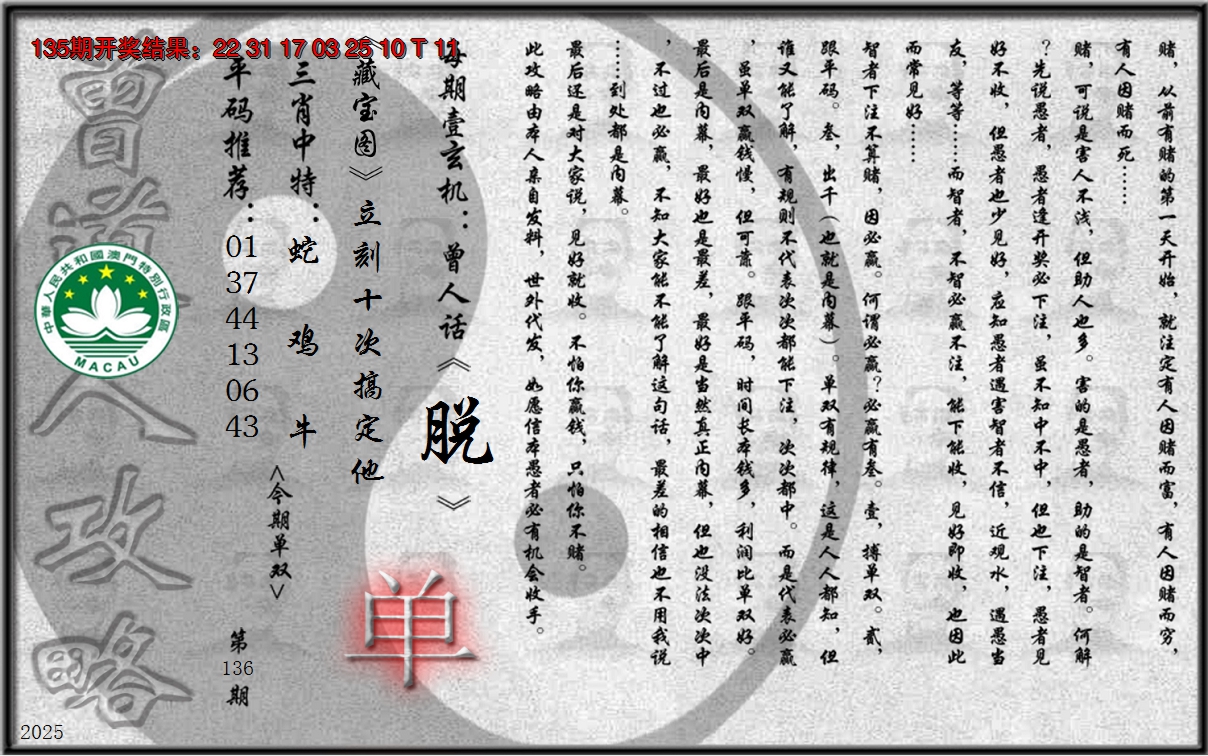 135期开奖结果：22 31 17 03 25 10 T 11
赌，从前有赌的第一天开始，就注定有人因赌而富，有人因赌而穷，
有人因赌而死……
赌，可说是害人不浅，但助人也多。害的是愚者，助的是智者。何解
？先说愚者，愚者逢开奖必下注，虽不知中不中，但也下注，愚者见
好不收，但愚者也少见好，应知愚者遇害智者不信，近观水，遇愚当
友，等等……而智者，不智必赢不注，能下能收，见好即收，也因此
而常见好……
智者下注不算赌，因必赢。何谓必赢？必赢有叁。壹，搏单双。贰，
跟平码。叁，出千（也就是内幕）。单双有规律，这是人人都知，但
谁又能了解，有规则不代表次次都能下注，次次都中。而是代表必赢
，虽单双赢钱慢，但可靠。跟平码，时间长本钱多，利润比单双好。
最后是内幕，最好也是最差，最好是当然真正内幕，但也没法次次中
，不过也必赢，不知大家能不能了解这句话，最差的相信也不用我说
……到处都是内幕。
最后还是对大家说，见好就收。不怕你赢钱，只怕你不赌。
此攻略由本人亲自发料，世外代发，如愿信本愚者必有机会收手。
每期壹玄机：曾人话《脱》
《藏宝图》立刻十次搞定他
三肖中特：蛇 鸡 牛
<今期单双>
单
平码推荐：
01
37
44
13
06
43
第
136
期
曾道人攻略
中華人民共和國澳門特別行政區
MACAU
2025